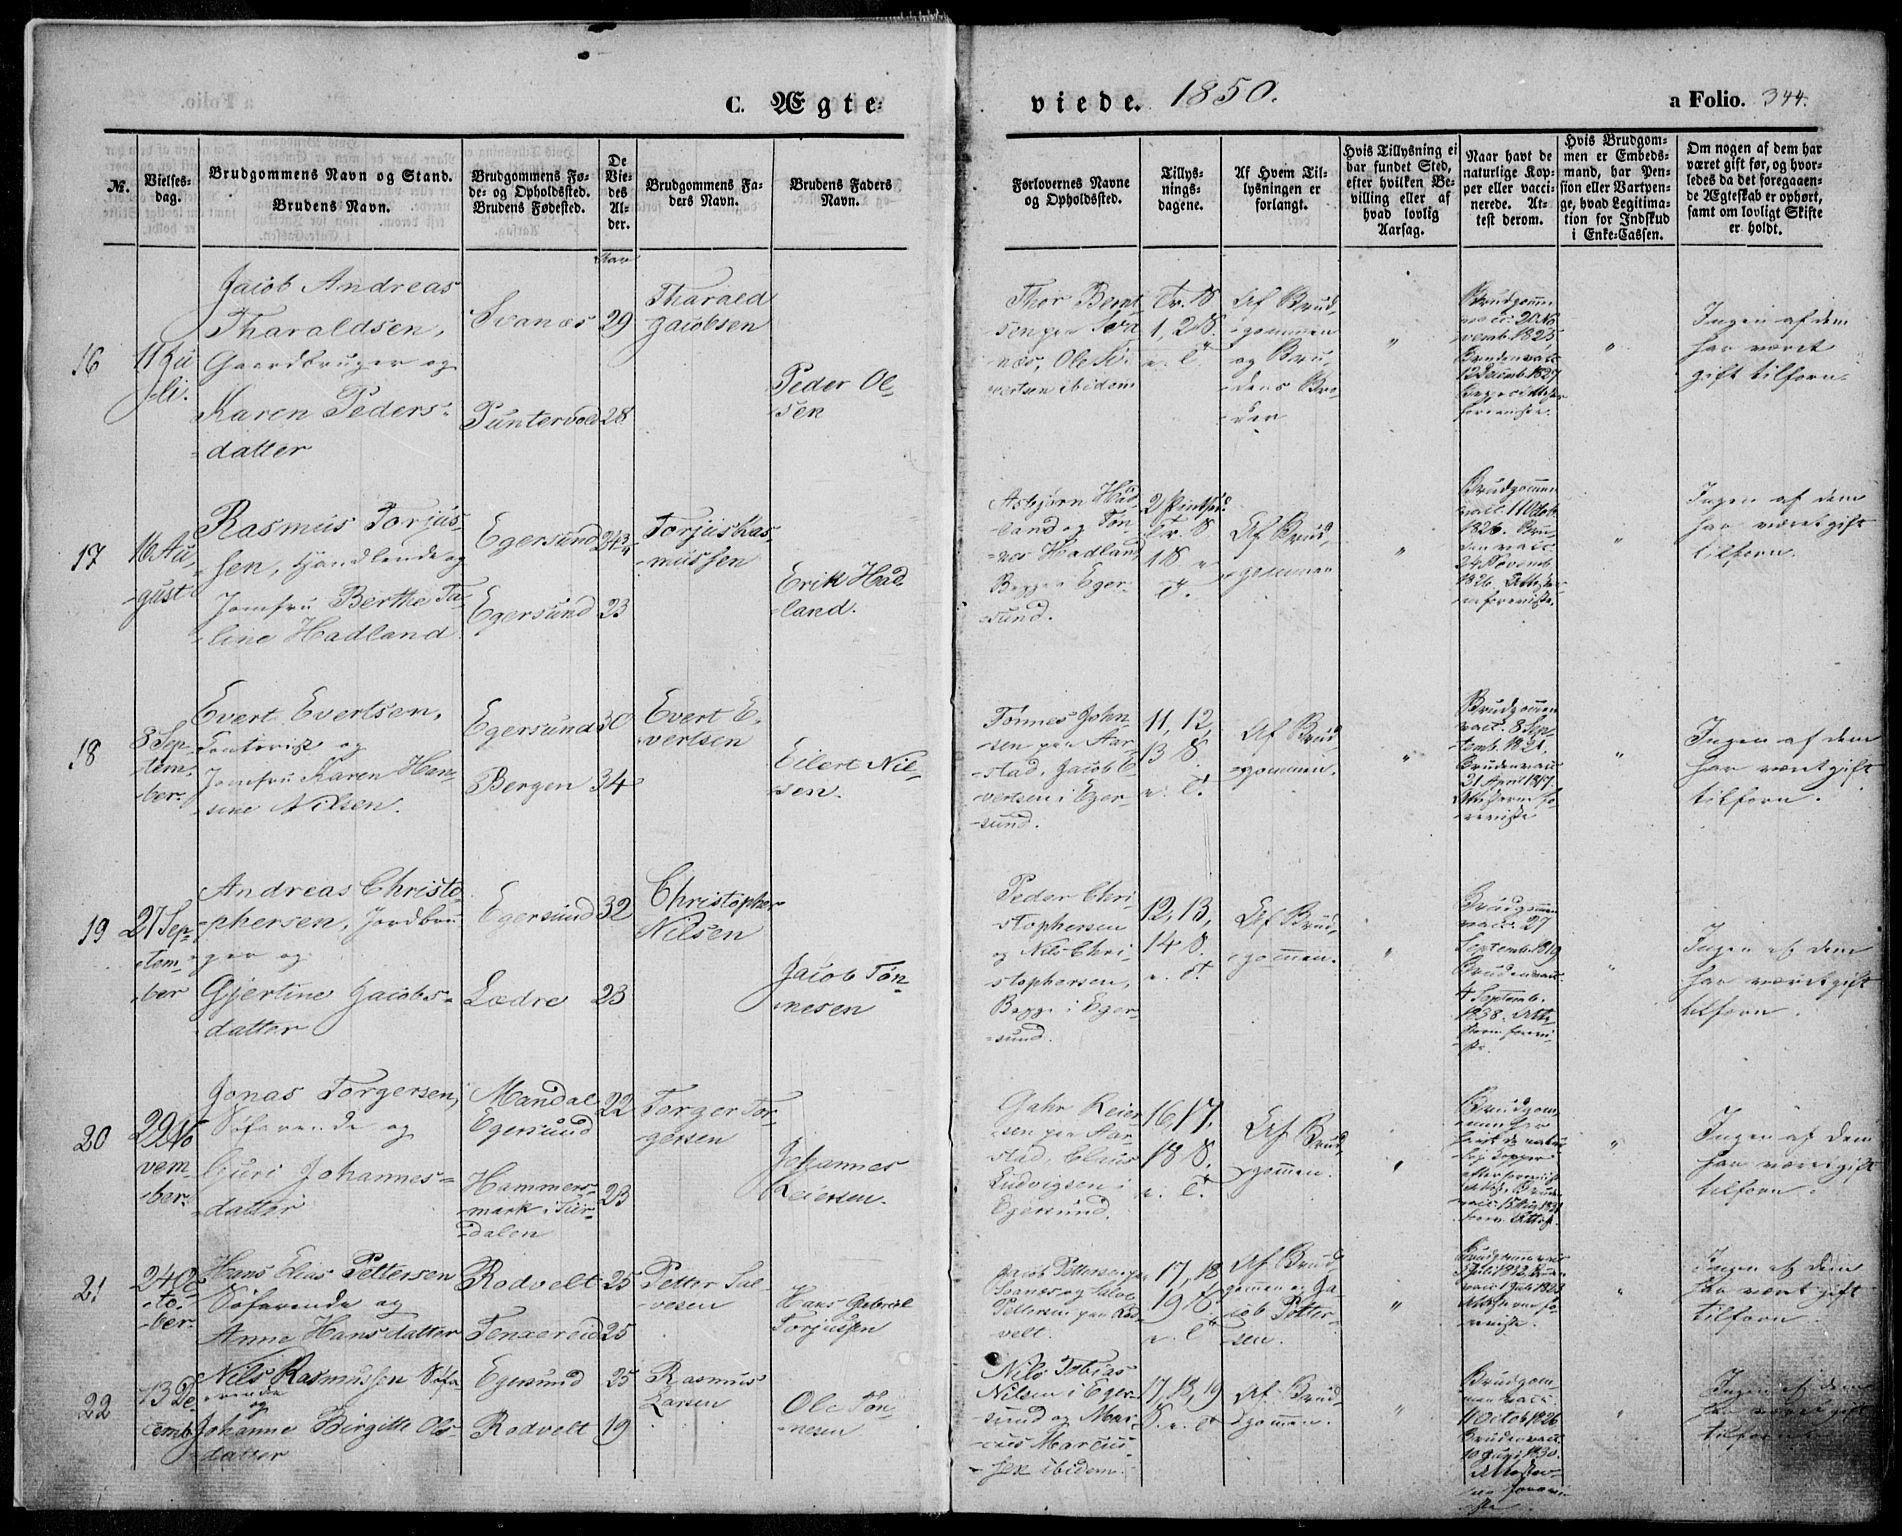 C. Ægte-
viede. 1850.
a Folio. 344.
No.
Vielses-
dag.
Brudgommens Navn og Stand.
Brudens Navn.
Brudgommens Fø-
de- og Opholdssted.
Brudens Fødested.
De
Vie-
des
Al-
der.
Brudgommens Fa-
ders Navn.
Brudens Faders
Navn.
Forlovernes Navne
og Opholdssted.
Tillys-
nings-
dagene.
Af Hvem Til-
lysningen er
forlangt.
Hvis Tillysning ei
har fundet Sted,
efter hvilken Be-
villing eller af
hvad lovlig
Aarsag.
Naar havt de
naturlige Kop-
per eller vacci-
nerede. At-
test derom.
Hvis Brudgom-
men er Embeds-
mand, har Pen-
sion eller Vartpen-
ge, hvad Legitima-
tion for Indskud
i Enke-Cassen.
Om nogen af dem har
været gift før, og hvor-
ledes da det foregaaen-
de Ægteskab er ophørt,
samt om lovligt Skifte
er holdt.
Aar
16
11 Ju-
li.
Jacob Andreas
Tharaldsen,
Gaardbruger og
Karen Peders-
datter
Svanæs
Puntervold
29
28
Tharald
Jacobsen
Peder Ol-
sen
Thor Bernt-
sen paa Sva
næs, Ole Si-
vertsen ibidem
Tr. S
1, 2 S.
e. T.
Af Brud-
gommen
og Bru-
dens Bro-
der
"
Brudgommen
vacc. 20 No
vemb. 1823
Bruden vacc.
12 Decemb. 1827
"
Ingen af dem
har været
gift tilforn.
17
16 Au-
gust
Rasmus Torjus-
sen, Handlende og
Jomfru Berthe Ta-
line Hadland
Egersund
Egersund
24 3/4
23
Torjus Ras
mussen
Erik Had-
land.
Asbjørn Had
land og Tøn
nes Hadland
Begge Eger-
sund.
2 Pintsed.
Tr. S
1 S e
T.
Af Brud-
gommen
"
Brudgommen
vacc. 11 Octob.
1826. Bru-
den vacc.
24 Novemb.
1826. Attester
ne foreviste.
"
Ingen af dem
har været gift
tilforn.
18
8 Sep-
tem-
ber.
Evert Evertsen,
Contorist og
Jomfru Karen Han-
sine Nilsen.
Egersund
Bergen
30
34
Evert E-
vertsen
Eilert Nil-
sen.
Tønnes John-
sen paa Aar-
stad, Jacob E-
vertsen i Eger-
sund.
11, 12,
13 S.
e. T.
Af Brud
gommen.
"
Brudgommen
vacc. 8 Sep-
temb. 1821.
Bruden vacc.
21 April 1817.
Attesterne fo-
reviste
"
Ingen af dem
har været gift
tilforn.
19
27 Sep-
tem-
ber
Andreas Christo-
phersen, Jordbru
ger og
Gjertine Jacobs-
datter
Egersund
Lædre
32
23
Christopher
Nilsen
Jacob Tøn-
nesen
Peder Chri-
stophersen
og Nils Chri-
stophersen,
Begge i Eger-
sund.
12, 13,
14 S.
e. T.
Af Brud-
gommen.
"
Brudgommen
vacc. 27
Septemb. 1819
Bruden vacc.
4 Septemb.
1838. Atte-
sterne forevi-
ste.
"
Ingen af dem
har været gift
tilforn.
20
29 No
vem-
ber.
Jonas Torgersen,
Søfarende og
Guri Johannes-
datter
Mandal
Egersund
Hammers-
mark i Sir-
dalen
22
23
Torger Tor-
gersen
Johannes
Reiersen.
Gahr Reier
sen paa Aar-
stad, Claus
Ludvigsen i
Egersund.
16, 17,
18 S.
e. T.
Af Brud-
gommen.
"
Brudgom-
men har
havt de natur
lige Kopper
"
Ingen af dem
har været gift
tilforn.
21
24 Oc
to-
ber.
Hans Elias Pettersen
Søfarende og
Anne Hansdatter
Rodvelt
Tenxereid
25
25
Petter Sal-
vesen
Hans Gabriel
Torjussen
Jacob Pettersen paa
Svanæs og Salve
Pettersen paa Rod
velt.
17, 18,
19 S.
e. T.
Af Brud
gommen og Ja-
cob Petter-
sen.
"
Attesterne fo-
reviste.
"
Ingen af dem
har været gift
tilforn.
22
13 De-
cemb.
Nils Rasmussen Søfa-
rende
og
Johanne Birgitte Ols-
datter
Egersund
Rodvelt
25
19
Rasmus
Larsen
Ole Tøn-
nesen
Nils Tobias
Nilsen i Eger-
sund og Mar-
cus Marcus-
sen ibidem.
17, 18, 19
S. e. T
Af Brud-
gommen.
"
Brudgom-
men vacc.
11 Octob. 1826
Bruden vacc.
10 Juni 1830.
Attester-
ne forevi
ste
"
Ingen af dem
har været gift
tilforn.